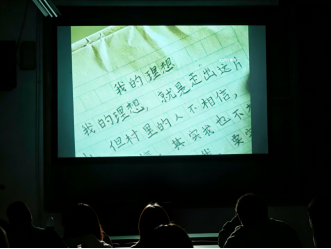 我的理想
我的理想，就是走出这片
但村里的人不相信，
其实我也不